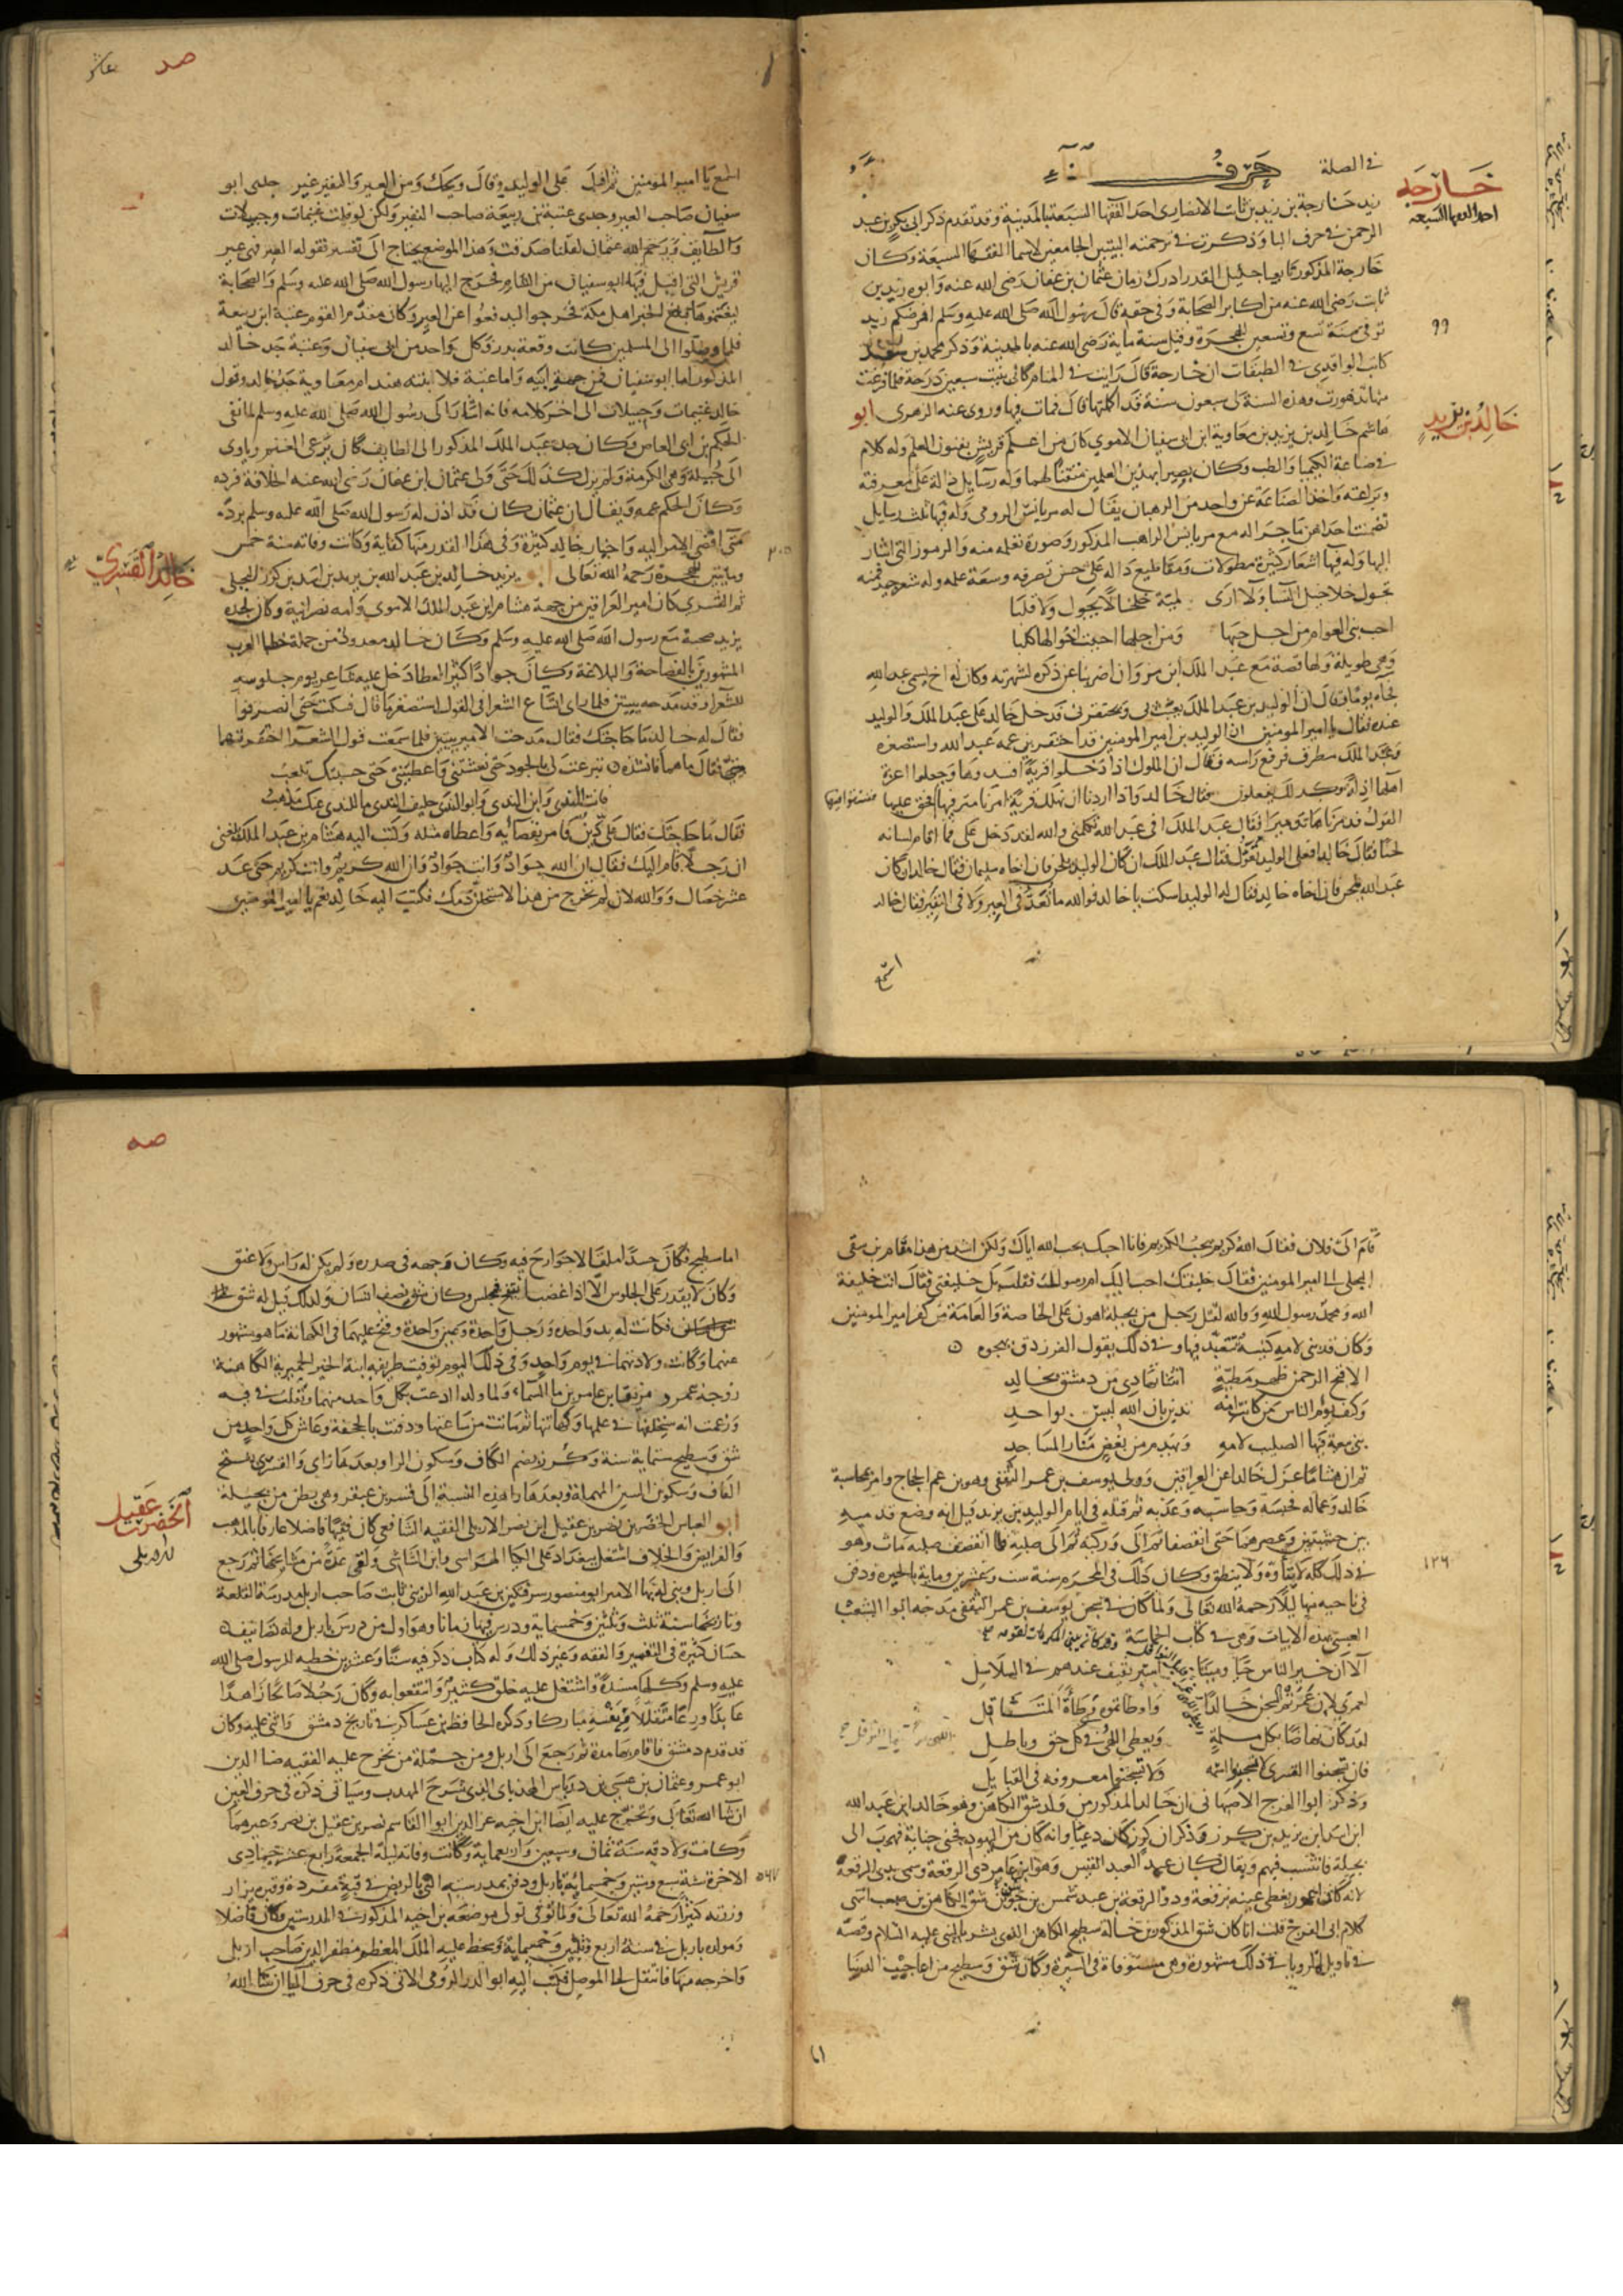 في الصلة
حرف الخاء
خارجة
احد الفقها السبعة
زيد خارجة بن زيد بن ثابت الانصاري احد الفقها السبعة بالمدينة وقد تقدم ذكر ابي بكر بن عبد
الرحمن في حرف البا وذكرت في ترجمته البيتين الجامعين لاسما الفقها السبعة وكان
خارجة المذكور تابعيا جليل القدر ادرك زمان عثمان بن عفان رضي الله عنه وابوه زيد بن
ثابت رضي الله عنه من اكابر الصحابة وفي حقه قال رسول الله صلى الله عليه وسلم افرضكم زيد
توفي سنة تسع وتسعين للهجرة وقيل سنة ماية رضي الله عنه بالمدينة وذكر محمد بن سعد
٩٩
كاتب الواقدي في الطبقات ان خارجة قال رايت في المنام كاني بنيت سبعين درجة فلما فرغت
منها تدهورت وهذه السنة لي سبعون سنة قد اكملتها قال فمات فيها وروى عنه الزهري ابو
خالد بن يزيد
هاشم خالد بن يزيد بن معاوية ابن ابي سفيان الاموي كان من اعلم قريش بفنون العلم وله كلام
في صناعة الكيميا والطب وكان بصيرا بهذين العلمين متقنا لهما وله رسايل دالة على معرفته
وبراعته واخذ الصناعة عن واحد من الرهبان يقال له مريانس الرومي وله فيها ثلث رسايل
تضمنت احداهن ما جرا له مع مريانس الراهب المذكور وصورة تعلمه منه والرموز التي اشار
اليها وله فيها اشعار كثيرة مطولات ومقاطيع دالة على حسن تصرفه وسعة علمه وله شعر جيد فمنه
تجول خلاخيل النسا ولا ارى لرملة خلخالا يجول ولا قلبا
احب بني العوام من اجل حبها ومن اجلها احببت اخوالها كلبا
وهي طويلة ولها قصة مع عبد الملك ابن مروان اضربنا عن ذكره لشهرته وكان له اخ يسمى عبد الله
فجاه يوما وقال ان الوليد بن عبد الملك يعبث بي ويحتقرني فدخل خالد على عبد الملك والوليد
عنده فقال يا امير المومنين ان الوليد بن امير المومنين قد احتقر بن عمه عبد الله واستصغره
وعبد الملك مطرف فرفع راسه وقال ان الملوك اذا دخلوا قرية افسدوها وجعلوا اعزة
اهلها اذلة وكذلك يفعلون فقال خالد واذا اردنا ان نهلك قرية امرنا مترفيها ففسقوا فيها فحق عليها
القول فدمرناها تدميرا فقال عبد الملك افي عبد الله تكلمني والله لقد دخل علي فما اقام لسانه
لحنا فقال خالد افعلى الوليد تعول فقال عبد الملك ان كان الوليد يلحن فان اخاه سليمان فقال خالد ان كان
عبد الله يلحن فان اخاه خالد فقال له الوليد اسكت يا خالد فوالله ما تعد في العير ولا في النفير فقال خالد
اسمع
صد
عاشر
اسمع يا امير المومنين ثم اقبل على الوليد وقال ويحك ومن العير والنفير غير جدي ابو
سفيان صاحب العير وجدي عتبة بن ربيعة صاحب النفير ولكن لو قلت غنيمات وجبيلات
والطايف ورحم الله عثمان لقلنا صدقت وهذا الموضع يحتاج الى تفسير فقوله العير فهي عير
قريش التي اقبل فيها ابو سفيان من الشام فخرج اليها رسول الله صلى الله عليه وسلم والصحابة
ليغنموها فبلغ الخبر اهل مكة فخرجوا ليدفعوا عن العير وكان مقدم القوم عتبة ابن ربيعة
فلما وصلوا الى المسلمين كانت وقعة بدر وكل واحد من ابي سفيان وعتبة جد خالد
المذكور اما ابو سفيان فمن جهة ابيه واما عتبة فلان ابنته هند ام معاوية جد خالد وقول
خالد غنيمات وجبيلات الى اخر كلامه فانه اشار الى رسول الله صلى الله عليه وسلم لما نفى
الحكم بن ابي العاص وكان جد عبد الملك المذكور الى الطايف كان يرعى الغنم وياوي
الى جبيلة وهي الكرمة ولم يزل كذلك حتى ولي عثمان ابن عفان رضي الله عنه الخلافة فرده
وكان الحكم عمه ويقال ان عثمان كان قد اذن له رسول الله صلى الله عليه وسلم برده
متى افضى الامر اليه واخبار خالد كثيرة وفي هذا القدر منها كفاية وكانت وفاته سنة خمس
خالد القسري
وثمانين للهجرة رحمه الله تعالى ابو يزيد خالد بن عبد الله بن يزيد بن اسد بن كرز البجلي
ثم القسري كان امير العراقين من جهة هشام ابن عبد الملك الاموي وامه نصرانية وكان لجده
يزيد صحبة مع رسول الله صلى الله عليه وسلم وكان خالد معدودا من جملة خطبا العرب
المشهورين بالفصاحة والبلاغة وكان جوادا كثير العطا دخل عليه شاعر يوم جلوسه
للشعرا وقد مدحه ببيتين فلما راى اتساع الشعرا في القول استصغر ما قال فسكت حتى انصرفوا
فقال له خالد ما حاجتك فقال مدحت الامير ببيتين فلما سمعت قول الشعرا احتقرتهما
فقال ما هما فانشده تبرعت لي بالجود حتى نعشتني واعطيتني حتى حسبتك تلعب
فانت الندى وابن الندى وابو الندى حليف الندى ما للندى عنك مذهب
فقال ما حاجتك فقال علي دين فامر بقضائه واعطاه مثله وكتب اليه هشام بن عبد الملك بلغني
ان رجلا قام اليك فقال ان الله جواد وانت جواد وان الله كريم وانت كريم حتى عد
عشر خصال ووالله لان لم تخرج من هذا لاستحلن دمك فكتب اليه خالد نعم يا امير المومنين
قام الي فلان فقال الله كريم يحب الكريم فانا احبك بحب الله اياك ولكن اشد من هذا مقام بن شقي
البجلي الى امير المومنين فقال خليفتك احب اليك ام رسولك فقلت بل خليفتي فقال انت خليفة
الله ومحمد رسول الله ووالله لقتل رجل من بجيلة اهون على الخاصة والعامة من كفر امير المومنين
وكان قد بنى لامه كنيسة تتعبد فيها وفي ذلك يقول الفرزدق يهجوه
الا قبح الرحمن ظهر مطية اتتنا تهادى من دمشق بخالد
وكيف يوم الناس من كانت امه تدين بان الله ليس بواحد
بنى بيعة فيها الصليب لامه ويهدم من بغض منار المساجد
ثم ان هشاما عزل خالدا عن العراقين وولى يوسف بن عمر الثقفي وهو بن عم الحجاج وامر بمحاسبة
خالد وعماله فحبسه وحاسبه وعذبه ثم قتله في ايام الوليد بن يزيد قيل انه وضع قدميه
بين خشبتين وعصرهما حتى انقصفا ثم الى وركيه ثم الى صلبه فلما انقصف صلبه مات وهو
في ذلك كله لا يتاوه ولا ينطق وكان ذلك في المحرم سنة ست وعشرين وماية بالحيرة ودفن
١٢٦
في ناحيه منها ليلا رحمه الله تعالى ولما كان في سجن يوسف بن عمر الثقفي مدحه ابوا الشغب
العبسي بهذه الابيات وهي في كتاب الحماسة
الا ان خير الناس حيا وميتا اسير ثقيف عندهم في السلاسل
لعمري لان عمرتم السجن خالدا واوطاتموه وطاة المتثاقل
لقد كان نهاضا بكل ملمة ويعطي اللهى في كل حق وباطل
فان تسجنوا القسري لا تسجنوا اسمه ولا تسجنوا معروفه في القبايل
وذكر ابوا الفرج الاصبهاني ان خالدا المذكور من ولد شق الكاهن وهو خالد ابن عبد الله
ابن اسد ابن يزيد بن كرز وذكر ان كرز كان دعيا وانه كان من اليهود فجنى جناية فهرب الى
بجيلة فانتسب فيهم ويقال كان عبد العبد القيس وهو ابن عامر ذي الرقعة وسمي بذي الرقعة
لانه كان اعور يغطي عينه برقعة وذو الرقعة بن عبد شمس بن جوين شق الكاهن بن صعب انتهى
كلام ابي الفرج قلت انا كان شق المذكور بن خالة سطيح الكاهن الذي بشر بالنبي عليه السلام وقصته
في تاويل الرويا في ذلك مشهورة وهي مستوفاة في السيرة وكان شق وسطيح من اعاجيب الدنيا
اما
صه
اما سطيح فكان جسدا ملقا لا جوارح فيه وكان وجهه في صدره ولم يكن له راس ولا عنق
وكان لا يقدر على الجلوس الا اذا غضب انتفخ فجلس وكان شق نصف انسان ولذلك قيل له شق
فكانت له يد واحده ورجل واحدة وعين واحدة وفتح عليهما في الكهانة ما هو مشهور
عنهما وكانت ولادتهما في يوم واحد وفي ذلك اليوم توفيت طريفه ابنة الخير الحميرية الكاهنة
زوجة عمرو مزيقيا بن عامر بن ما السماء ولما ولدا دعت بكل واحد منهما وتفلت في فيه
وزعمت انه سيخلفها في علمها وكهانتها ثم ماتت من ساعتها ودفنت بالجحفة وعاش كل واحد من
شق وسطيح ستماية سنة وكرز بضم الكاف وسكون الرا وبعدها زاي والقسري بفتح
القاف وسكون السين المهملة وبعدها را هذه النسبة الى قسر بن عبقر وهي بطن من بجيلة
الخضر بن عقيل
الاربلي
ابو العباس الخضر بن نصر بن عقيل ابن نصر الاربلي الفقيه الشافعي كان فقيها فاضلا عارفا بالمذهب
والفرايض والخلاف اشتغل ببغداد على الكيا الهراسي وابن الشاشي ولقي عدة من مشايخها ثم رجع
الى اربل وبنى له بها الامير ابو منصور سرفتكين بن عبد الله الزيني نايب صاحب اربل مدرسة القلعة
وتاريخها سنة ثلث وثلثين وخمسماية ودرس فيها زمانا وهو اول من درس باربل وله تصانيف
حسان كثيرة في التفسير والفقه وغير ذلك وله كتاب ذكر فيه ستا وعشرين خطبه للرسول صلى الله
عليه وسلم وكلها مسندة واشتغل عليه خلق كثير وانتفعوا به وكان رجلا صالحا زاهدا
عابدا ورعا متقللا ونفسه مباركا وذكره الحافظ بن عساكر في تاريخ دمشق واثنى عليه وكان
قد قدم دمشق فاقام بها مدة ثم رجع الى اربل ومن جملة من تخرج عليه الفقيه ضيا الدين
ابو عمرو عثمان بن عيسى بن درباس الهذباني الذي شرح المهذب وسياتي ذكره في حرف العين
ان شا الله تعالى وتخرج عليه ايضا ابن اخيه عز الدين ابوا القاسم نصر بن عقيل بن نصر وغيرهما
وكانت ولادته سنة ثمان وسبعين واربعماية وكانت وفاته ليلة الجمعة رابع عشر جمادى
الاخرة سنة سبع وستين وخمسماية باربل ودفن بمدرسته التي بالربض في قبة مفردة وقبره يزار
٥٦٧
وزرته كثيرا رحمه الله تعالى ولما توفي تولى موضعه بن اخيه المذكور في المدرستين وكان فاضلا
ومولده باربل في سنة اربع وثلثين وخمسماية وسخط عليه الملك المعظم مظفر الدين صاحب اربل
واخرجه منها فانتقل الى الموصل فكتب اليه ابوا الدر الرومي الاتي ذكره في حرف اليا ان شا الله